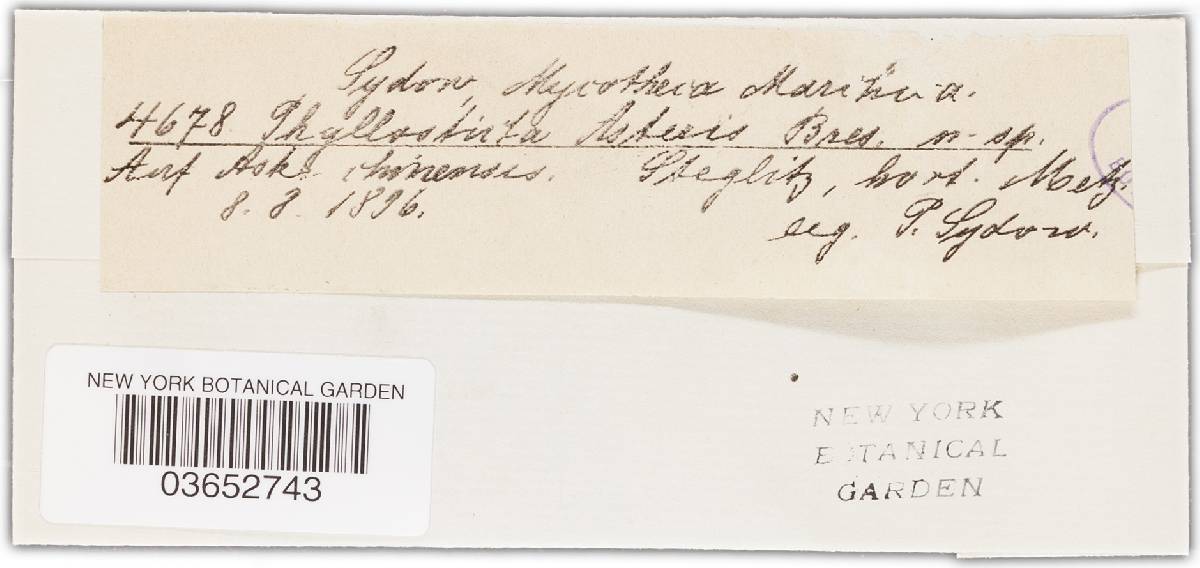 Sydow, Mycotheca Marchica.
4678 Phyllosticta Asteris Bres. n. sp.
Auf Ast. chinensis. Steglitz, hort. Metz.
8. 8. 1896.
leg. P. Sydow.
NEW YORK BOTANICAL GARDEN
03652743
NEW YORK
BOTANICAL
GARDEN